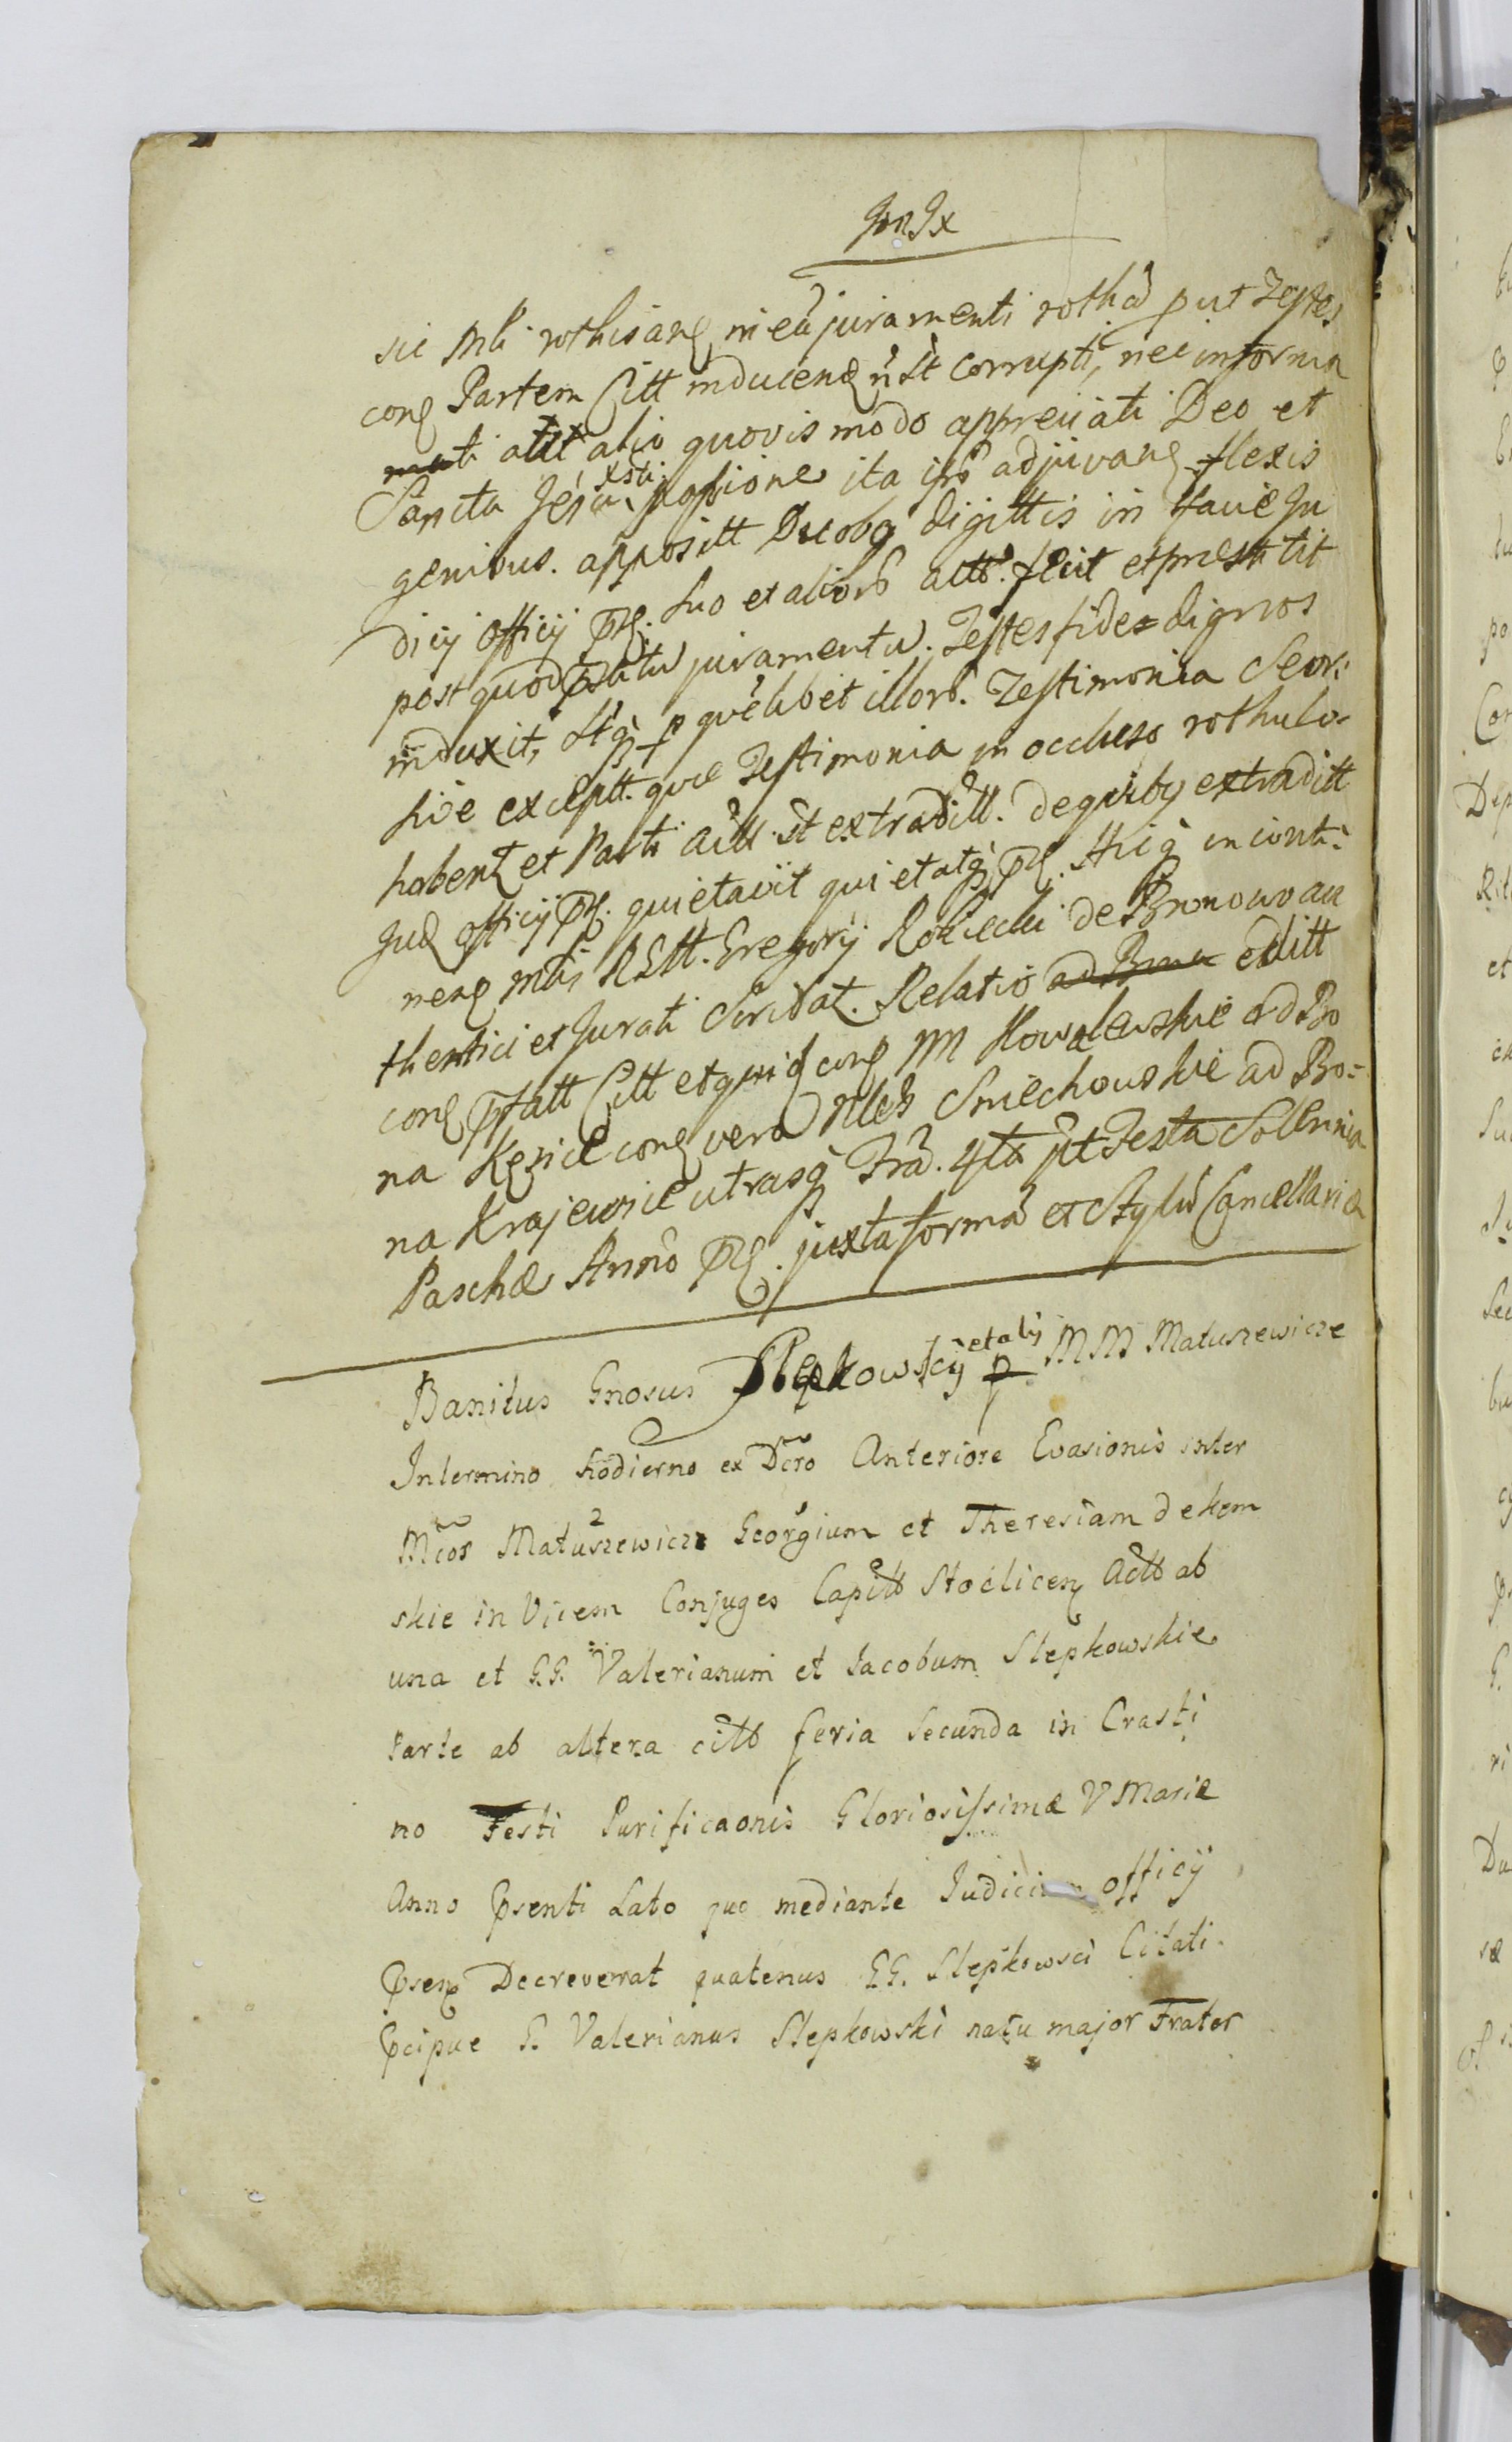 sic Mli rothisanę in eâ juramenti rothâ put Testes
conę Partem Citt inducenę ñ st corrupti, nec informa
ti aut alio quovis modo appreciati Deo et
Sancta Jesu Xsti passione ita ipso adjuvanę flexis
genibus. apposítt Duobg digittis in facie Ju
dicij Officij suo et aliorb actt. fecit et præstitit
post quod juramentu. Testes fide dignos
induxit, quelibet illorb. Testimonia Seor:
sive exceptt. quæ Testimonia in occluso rothulo
habent et Parti Actt. st extraditt. de quibg extraditt
Juę officij quietavit quietatq. Hicq in conti:
nenę Mtis REtt. Gregorij Rokicki de Bronowo au
thentici et Jurati Scribat. Relatio ad Bona editt
conę Citt et quid conę MM Kowalewskie ad Bo
na Kęzice conę vero Nlch Sniechowskie ad Bo=
na Krajewice utrasq Frâ. 4ta pt Festa Solennia
Paschæ Anno juxta formâ et Stylû Cancellariæ
Banitus Gnosus Slepkowscÿ et alij p MM Matuszewicze
In termino hodierno ex Dcro Anteriore Evasionis inter
Mcos Matuszewicze Georgium et Theresiam de kem
skie in Vicem Conjuges Capitt Stoclicenę Acttb ab
una et GG. Valerianum et Jacobum Slepkowskie
Parte ab altera cittb feria Secunda in Crasti
no Festi Purificaonis Gloriosissimæ V Mariæ
Anno Psenti Lato quo mediante Judicium officij
Psenę Decreverat quatenus GG. Slepkowsci Citati
Pcipue G. Valerianus Slepkowski natu major Frater